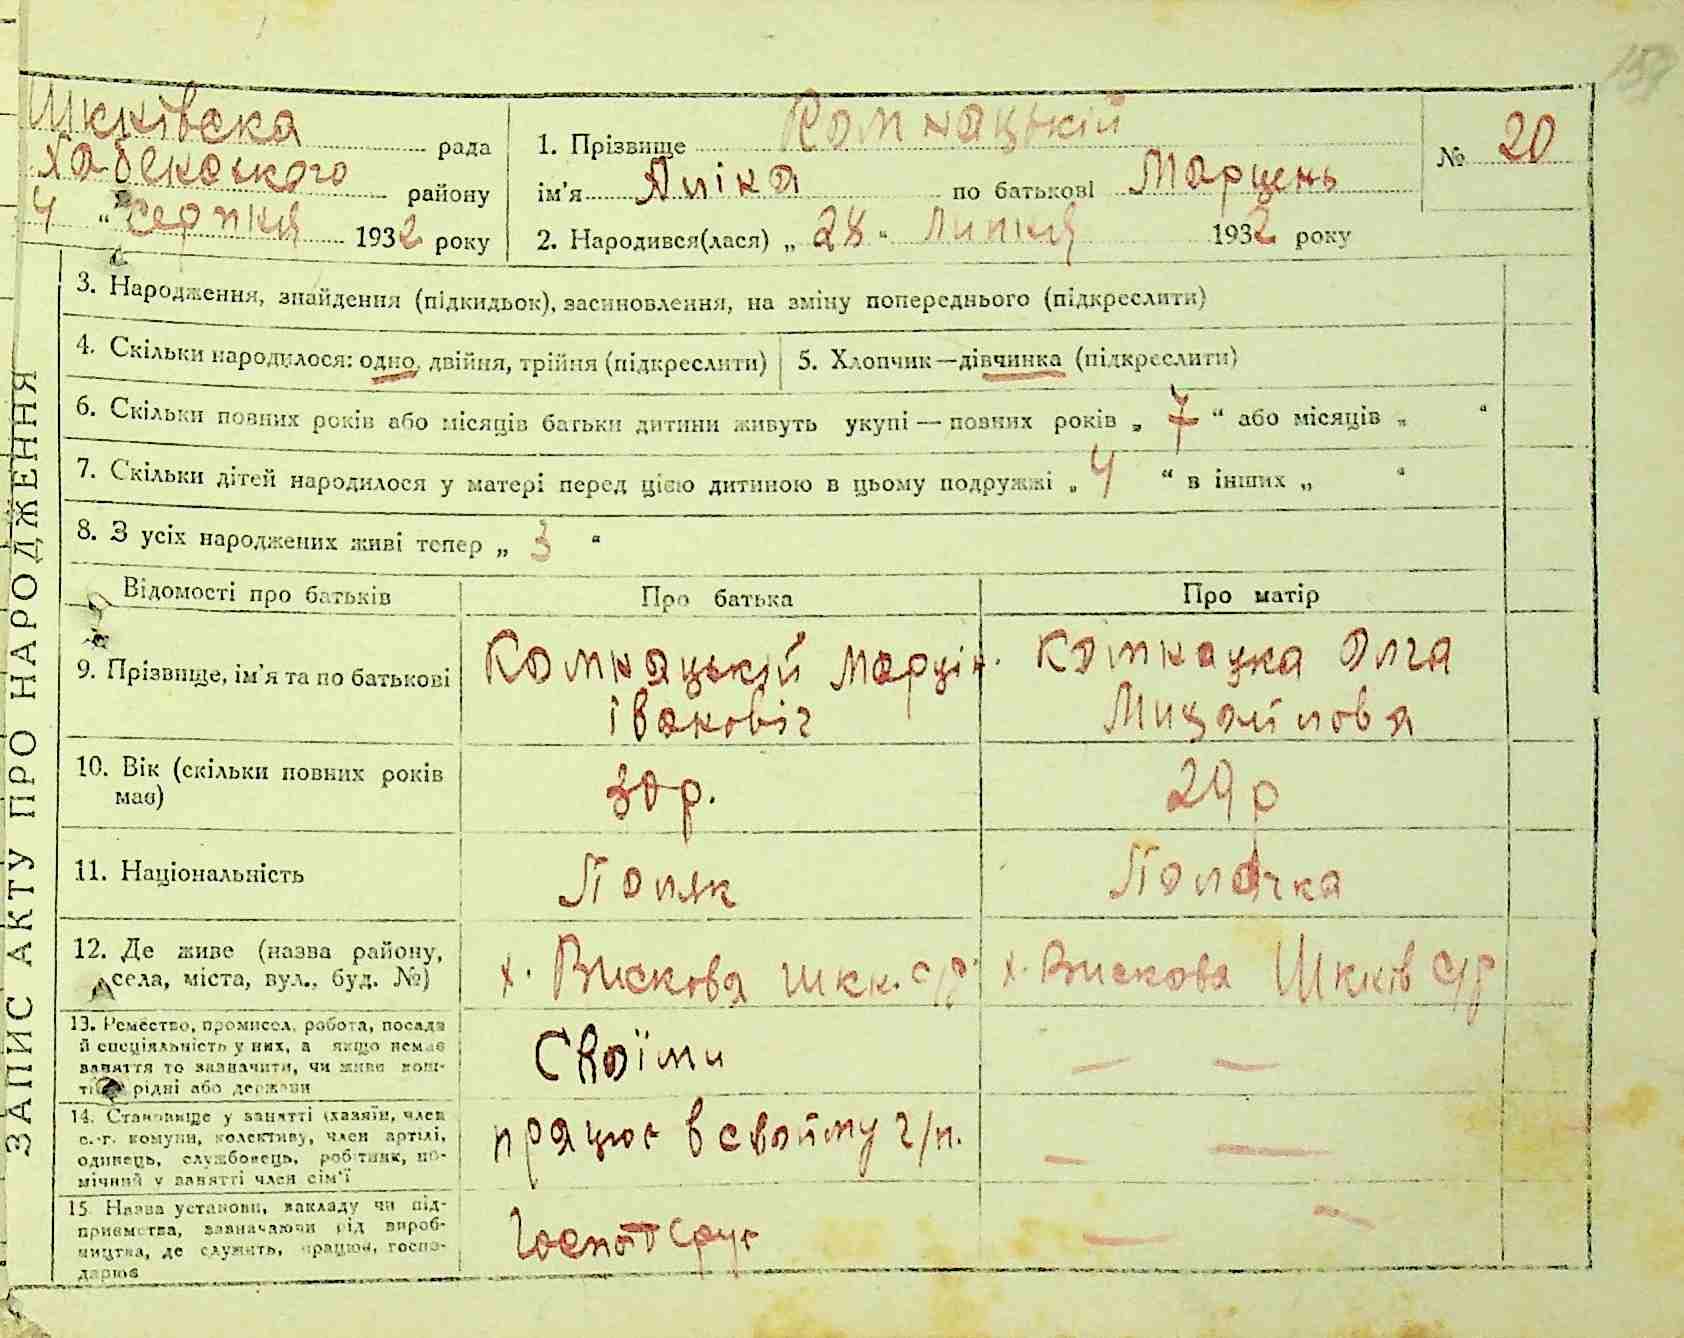 159
Шкнівска рада
Хабенського району
4 " серпня 1932 року
1. Прізвище Комнацькій
ім'я Аліна по батькові Марцень
2. Народився(лася) „ 28 " Липня 1932 року
№ 20
ЗАПИС АКТУ ПРО НАРОДЖЕННЯ
3. Народження, знайдення (підкидьок), засиновлення, на зміну попереднього (підкреслити)
4. Скільки народилося: одно, двійня, трійня (підкреслити)
5. Хлопчик—дівчинка (підкреслити)
6. Скільки повних років або місяців батьки дитини живуть укупі — повних років „ 7 " або місяців „ "
7. Скільки дітей народилося у матері перед цією дитиною в цьому подружжі „ 4 " в інших „ "
8. З усіх народжених живі тепер „ 3 "
Відомості про батьків
Про батька
Про матір
9. Прізвище, ім'я та по батькові
Комнацькій Марцін.
Івановіч
Комнацка Олга
Михайлова
10. Вік (скільки повних років
має)
30 р.
29 р
11. Національність
Поляк
Полячка
12. Де живе (назва району,
села, міста, вул., буд. №)
х. Вискова Шкн. с/р
х. Вискова Шкнів с/р
13. Ремество, промисел, робота, посада
й спеціяльність у них, а якщо немає
заняття то зазначити, чи живе кош-
рідні або держави
Своїми
— —
14. Становище у занятті (хазяїн, член
с.-г. комуни, колективу, член артілі,
одинець, службовець, робітник, по-
мічний у занятті член сім'ї
працює в свойму г/п.
— —
15. Назва установи, закладу чи під-
приємства, зазначаючи рід вироб-
ництва, де служить, працює, госпо-
дарює
Господсрує
— —